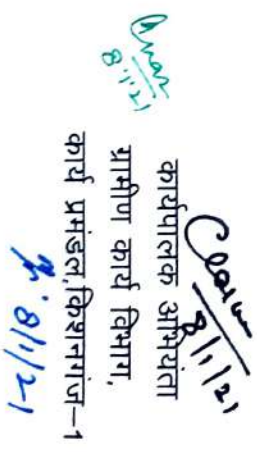 8/1/21
8/1/21
कार्यपालक अभियंता
ग्रामीण कार्य विभाग,
कार्य प्रमंडल,किशनगंज–1
8/1/21